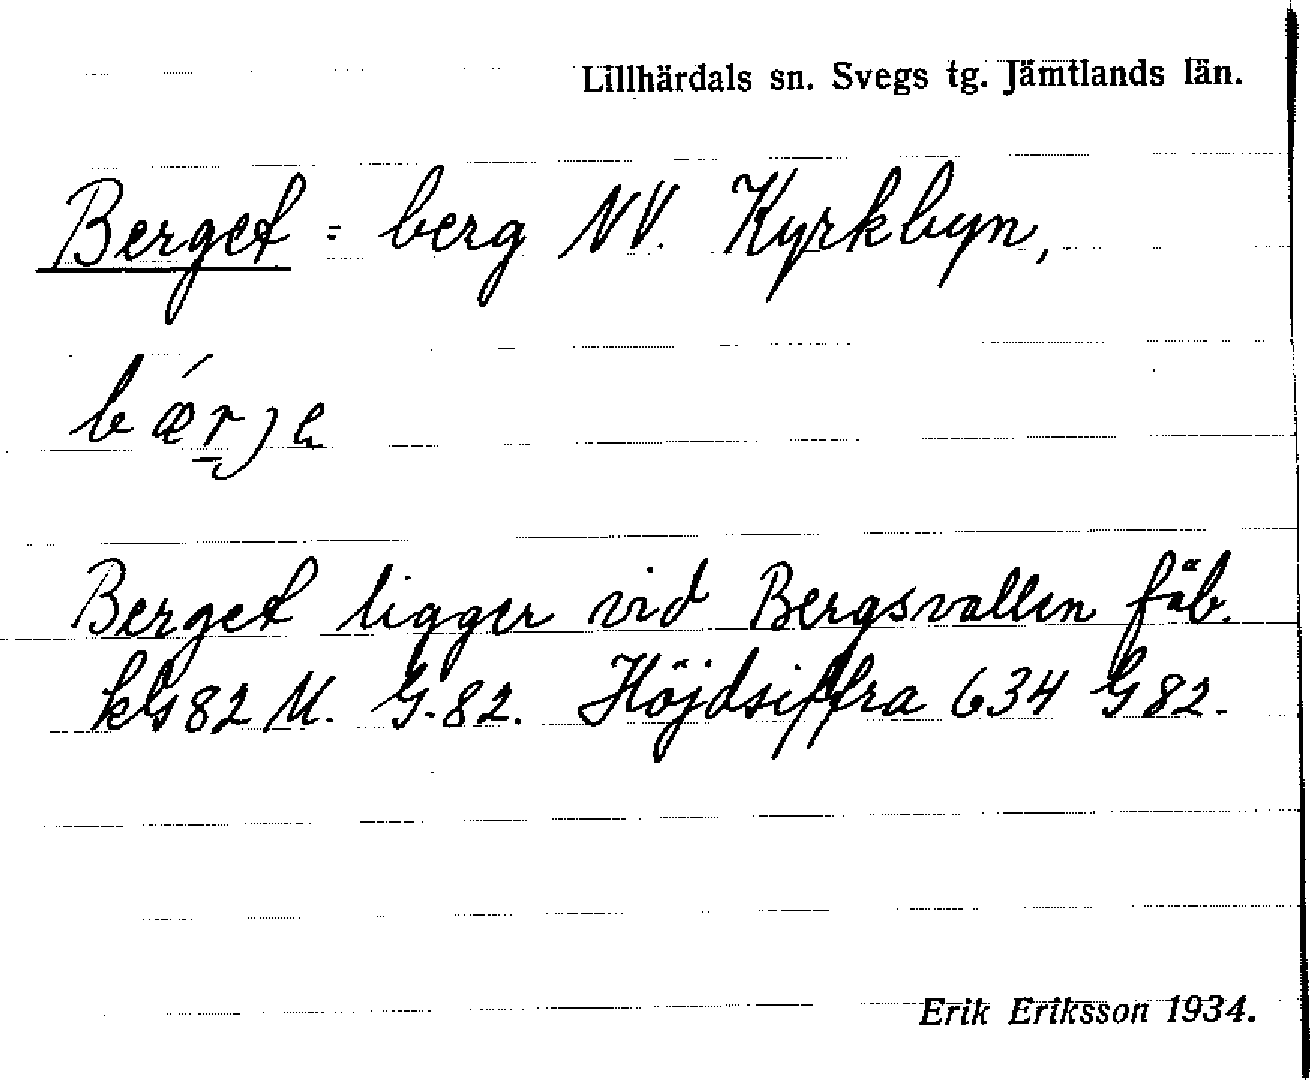 Lillhärdals sn. Svegs tg. Jämtlands län.
Berget = berg NV. Kyrkbyn,
bǽr̠ȷe
Berget ligger vid Bergsvallen fäb.
kG82 M. G.82. Höjdsiffra 634 G82.
Erik Eriksson 1934.